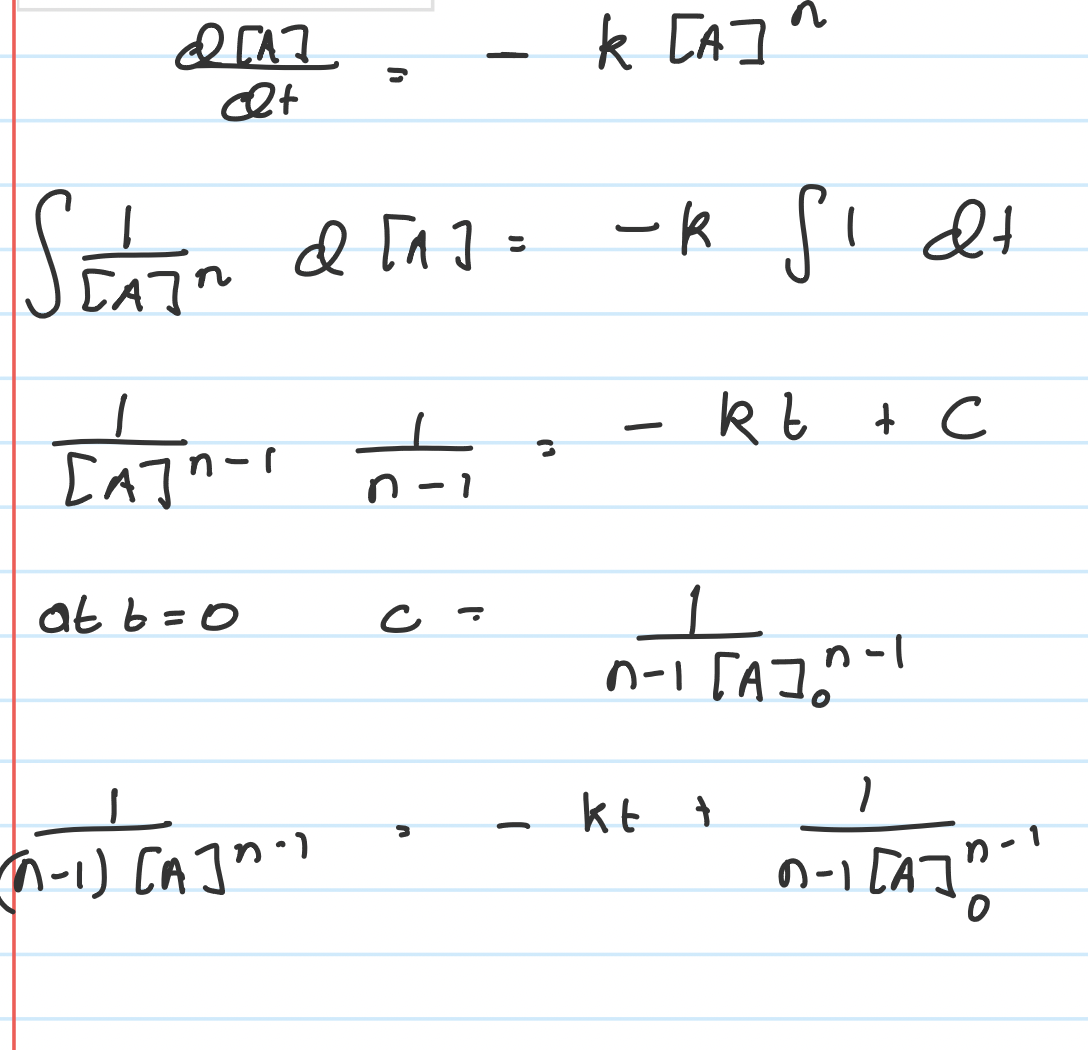 d[A]/dt = - k [A]^n
∫ 1/[A]^n d [A] = - k ∫ 1 dt
1/[A]^(n-1) 1/(n-1) = - kt + C
at t=0 c = 1/(n-1 [A]_0^(n-1))
1/((n-1) [A]^(n-1)) = - kt + 1/(n-1 [A]_0^(n-1))